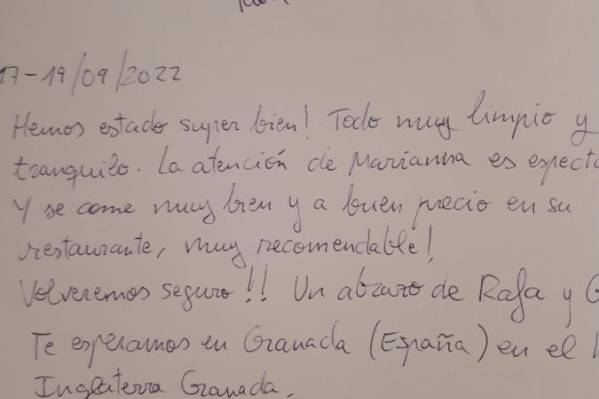 17-19/09/2022
Hemos estado super bien! Todo muy limpio y
tranquilo. La atención de Marianna es espect
Y se come muy bien y a buen precio en su
restaurante, muy recomendable!
Volveremos seguro!! Un abrazo de Rafa y
Te esperamos en Granada (España) en el
Inglaterra Granada.